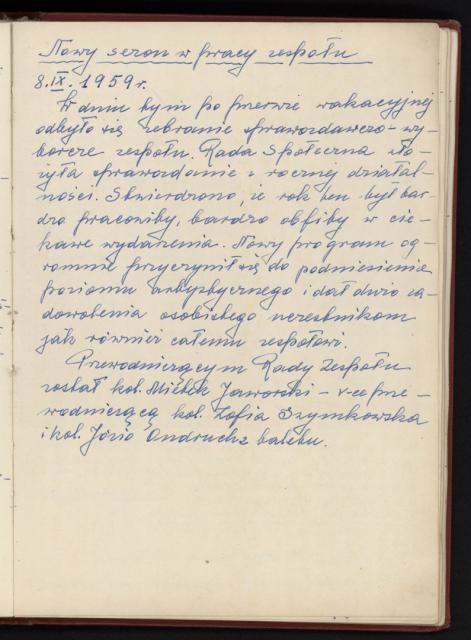 Nowy sezon w pracy zespołu
8.IX.1959 r.
W dniu tym po przerwie wakacyjnej
odbyło się zebranie sprawozdawczo-wy-
borcze zespołu. Rada Społeczna zło-
żyła sprawozdanie z rocznej działal-
ności. Stwierdzono, że rok ten był bar-
dzo pracowity, bardzo obfity w cie-
kawe wydarzenia. Nowy program og-
romnie przyczynił się do podniesienia
poziomu artystycznego i dał dużo za-
dowolenia osobistego uczestnikom
jak również całemu zespołowi.
Przewodniczącym Rady Zespołu
został kol. Mietek Jaworski - v-ce prze-
wodniczącą kol. Zofia Szymkowska
i kol. Józio Andruch z baletu.